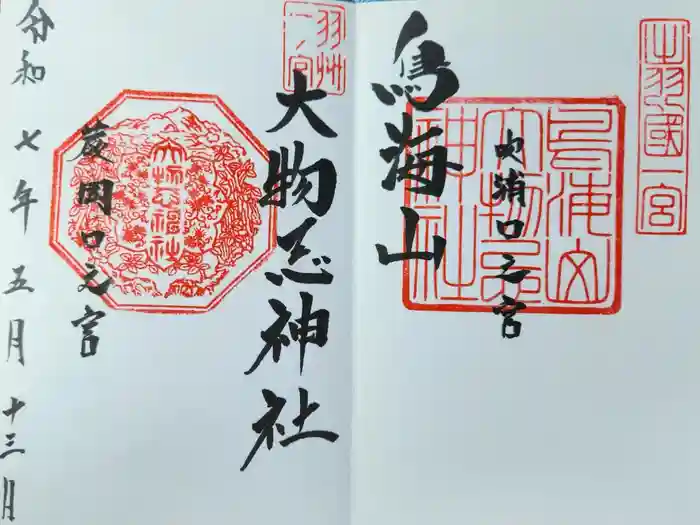 出羽國一宮
鳥海山
吹浦口之宮
鳥海山
大物忌
神社
羽州
一宮
大物忌神社
蕨岡口之宮
大物忌神社
令和七年五月十三日